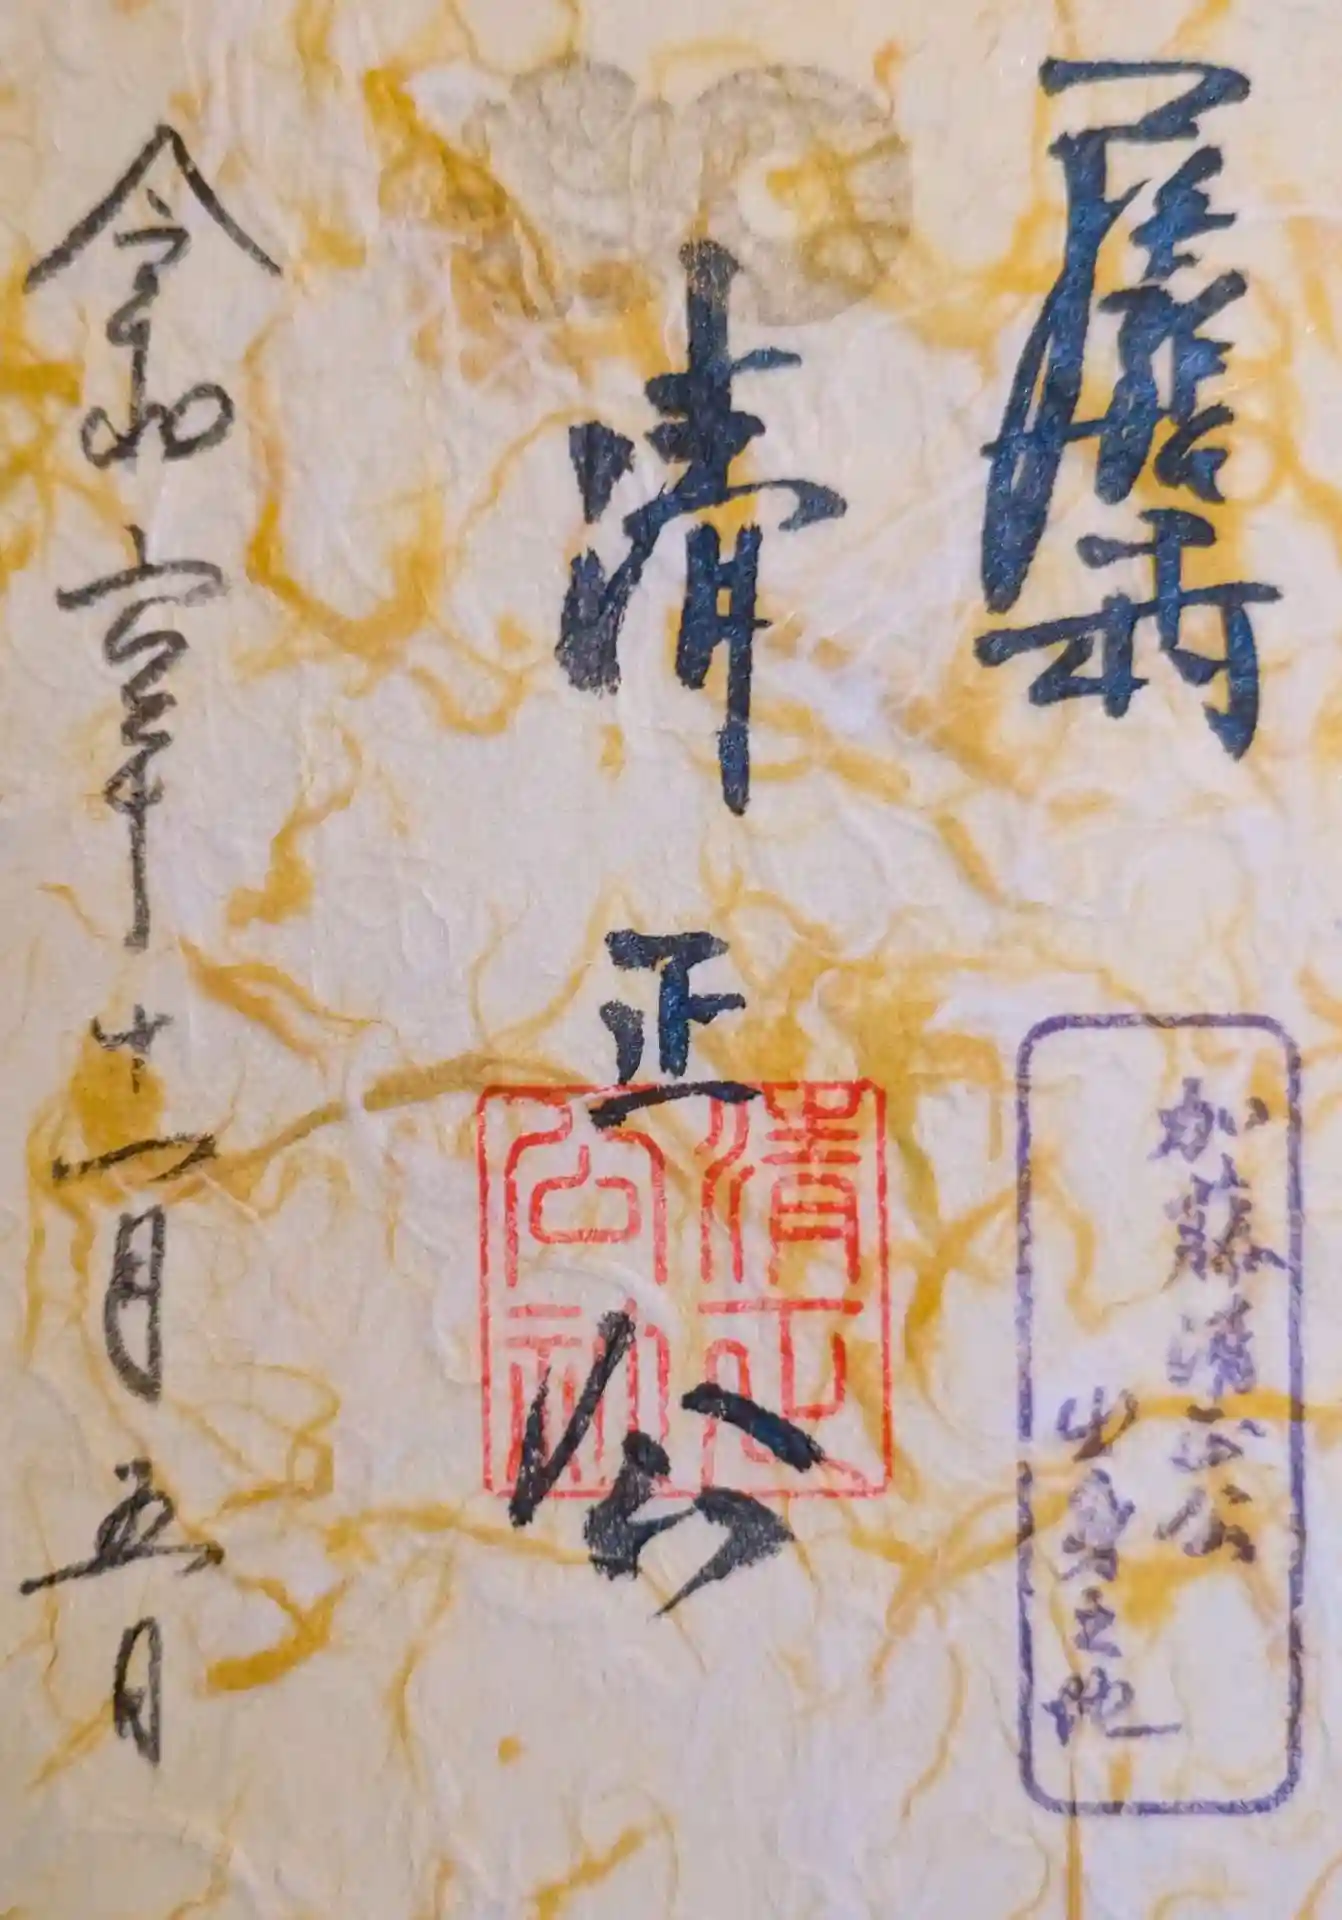 清正公
加藤清正公
出身之地
清正
令和六年十一月五日